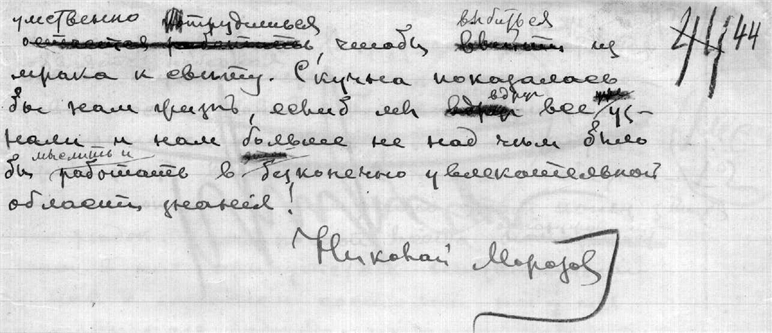 умственно потрудиться выбиться
остается работать, чтобы из 44
мрака к свету. Скучна показалась
бы нам жизнь, еслиб мы вдруг все уз-
нали и нам больше не над чем было
мыслить и
бы работать в безконечно увлекательной
области знания!
Николай Морозов